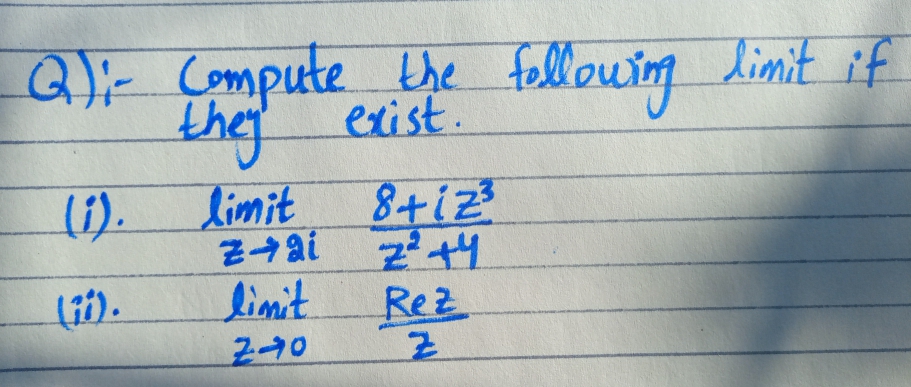 Q):- Compute the following limit if
they exist.
(i). limit 8+iz³
z→2i z²+4
(ii). limit Re z
z→0 z